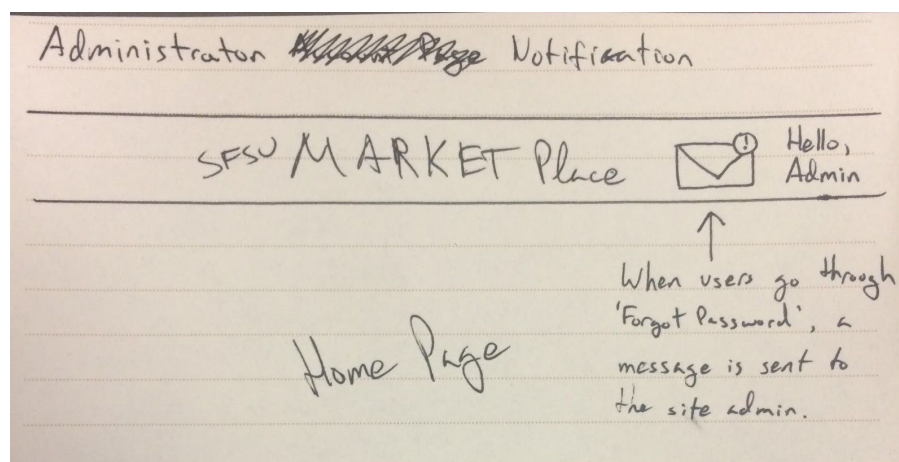 Administrator Notification
SFSU MARKET Place
!
Hello,
Admin
When users go through
'Forgot Password', a
message is sent to
the site admin.
Home Page